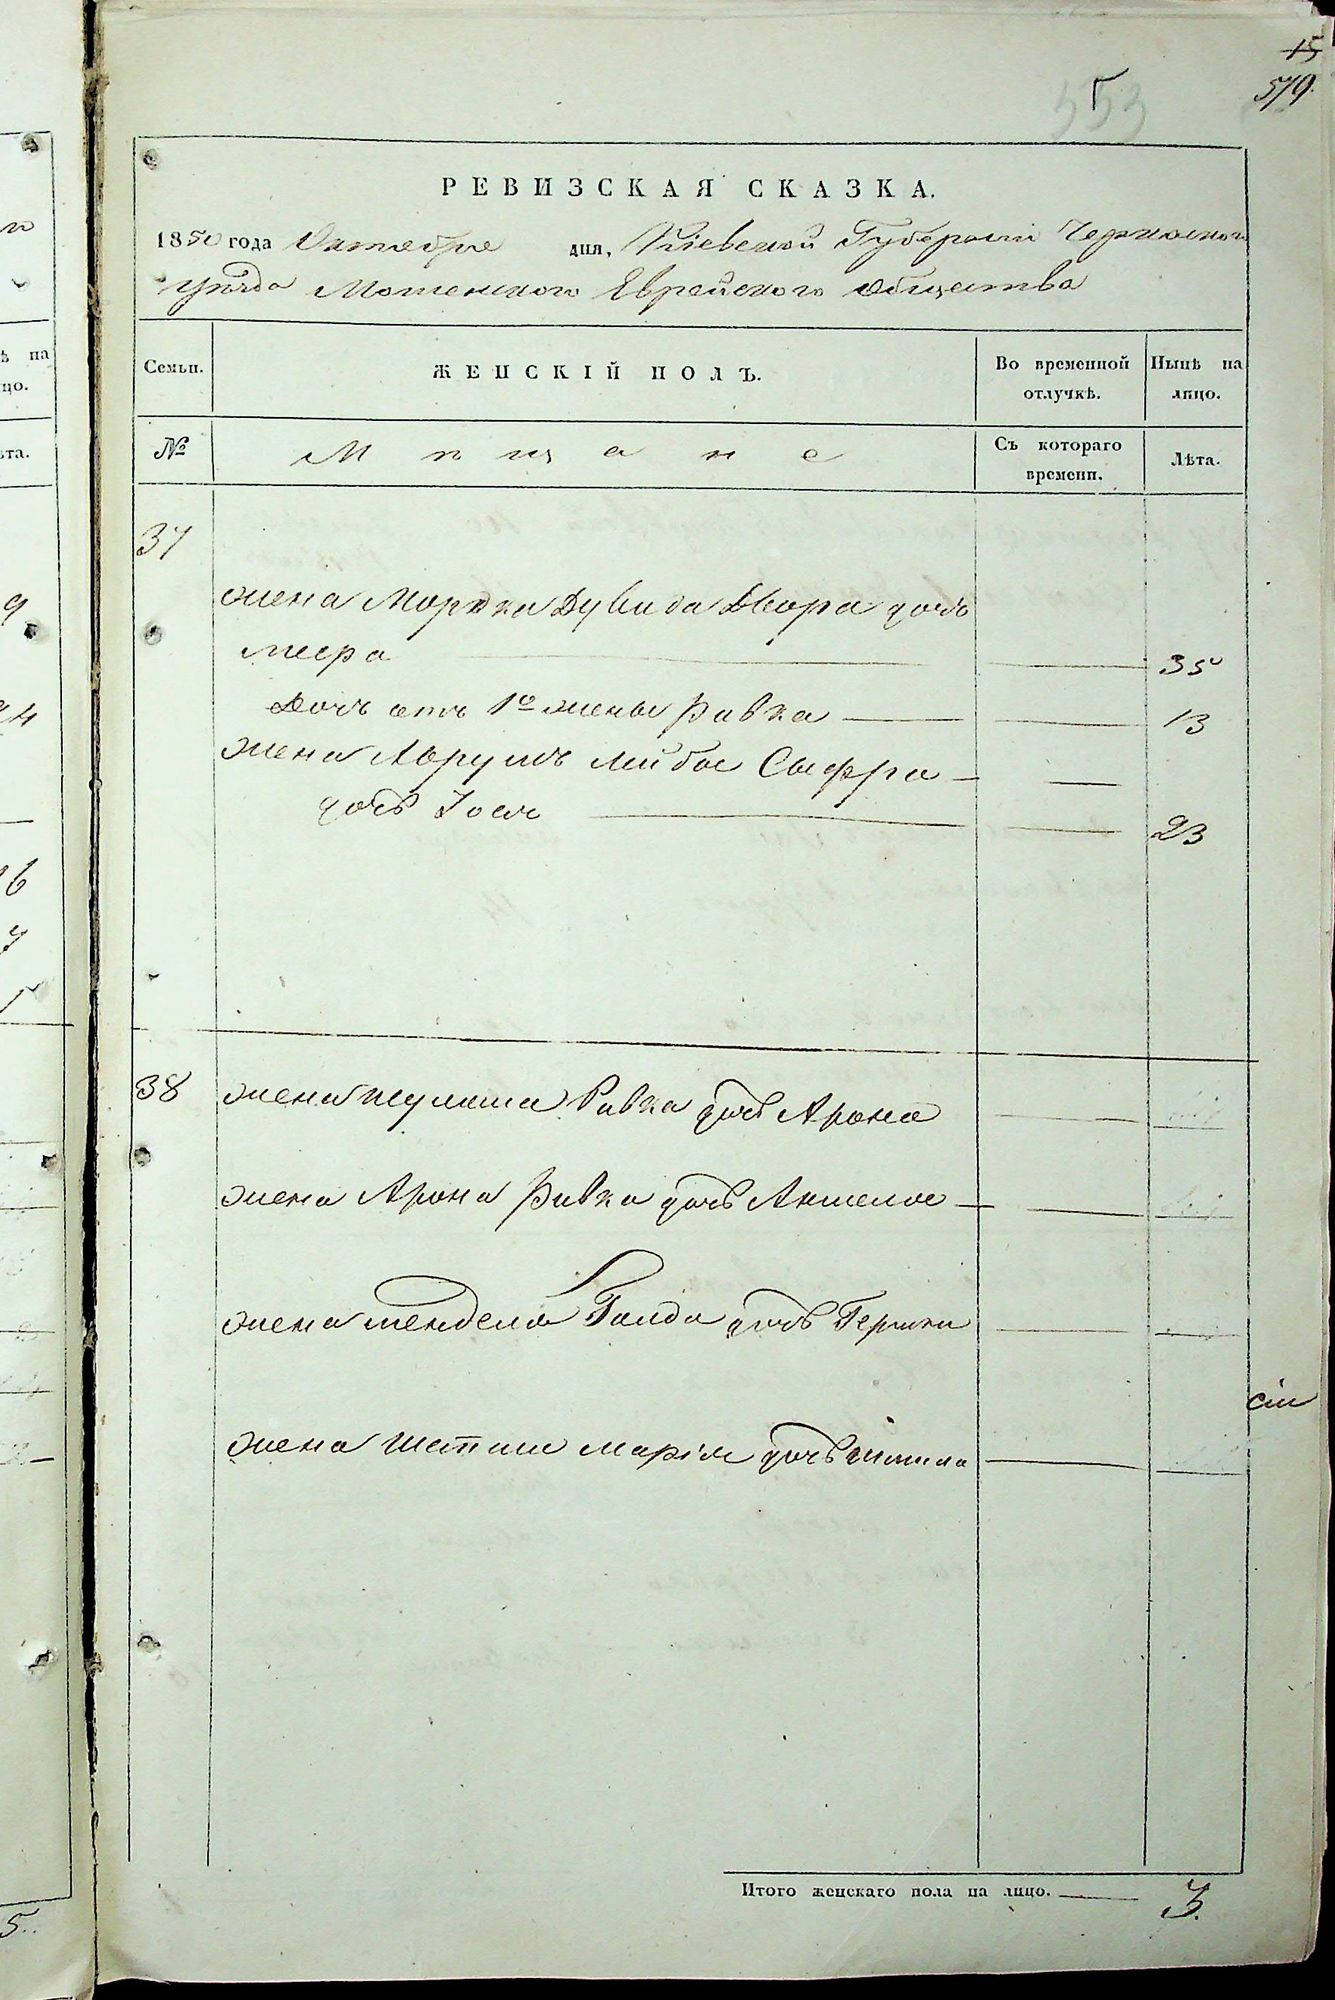 15
519.
353
РЕВИЗСКАЯ СКАЗКА.
1850 года Октября дня, Кіевской Губерніи Черкаского
уѣзда Мошенского Еврейского общества
Семьи. ЖЕНСКІЙ ПОЛЪ. Во временной отлучкѣ. Нынѣ на лицо.
№ Мѣщане Съ котораго времени. Лѣта.
37
жена Мордка Дувида Двора дочь
Меера 35
Дочь отъ 1й жены Ривка 13
жена Аврумъ Лейбы Сифра
дочь Іося 23
38 жена Шулима Ривка дочь Арона
жена Арона Ривка дочь Аншеля
жена Менделя Голда дочь Гершки
жена Марія дочь
сіи
Итого женскаго пола на лицо. 3.